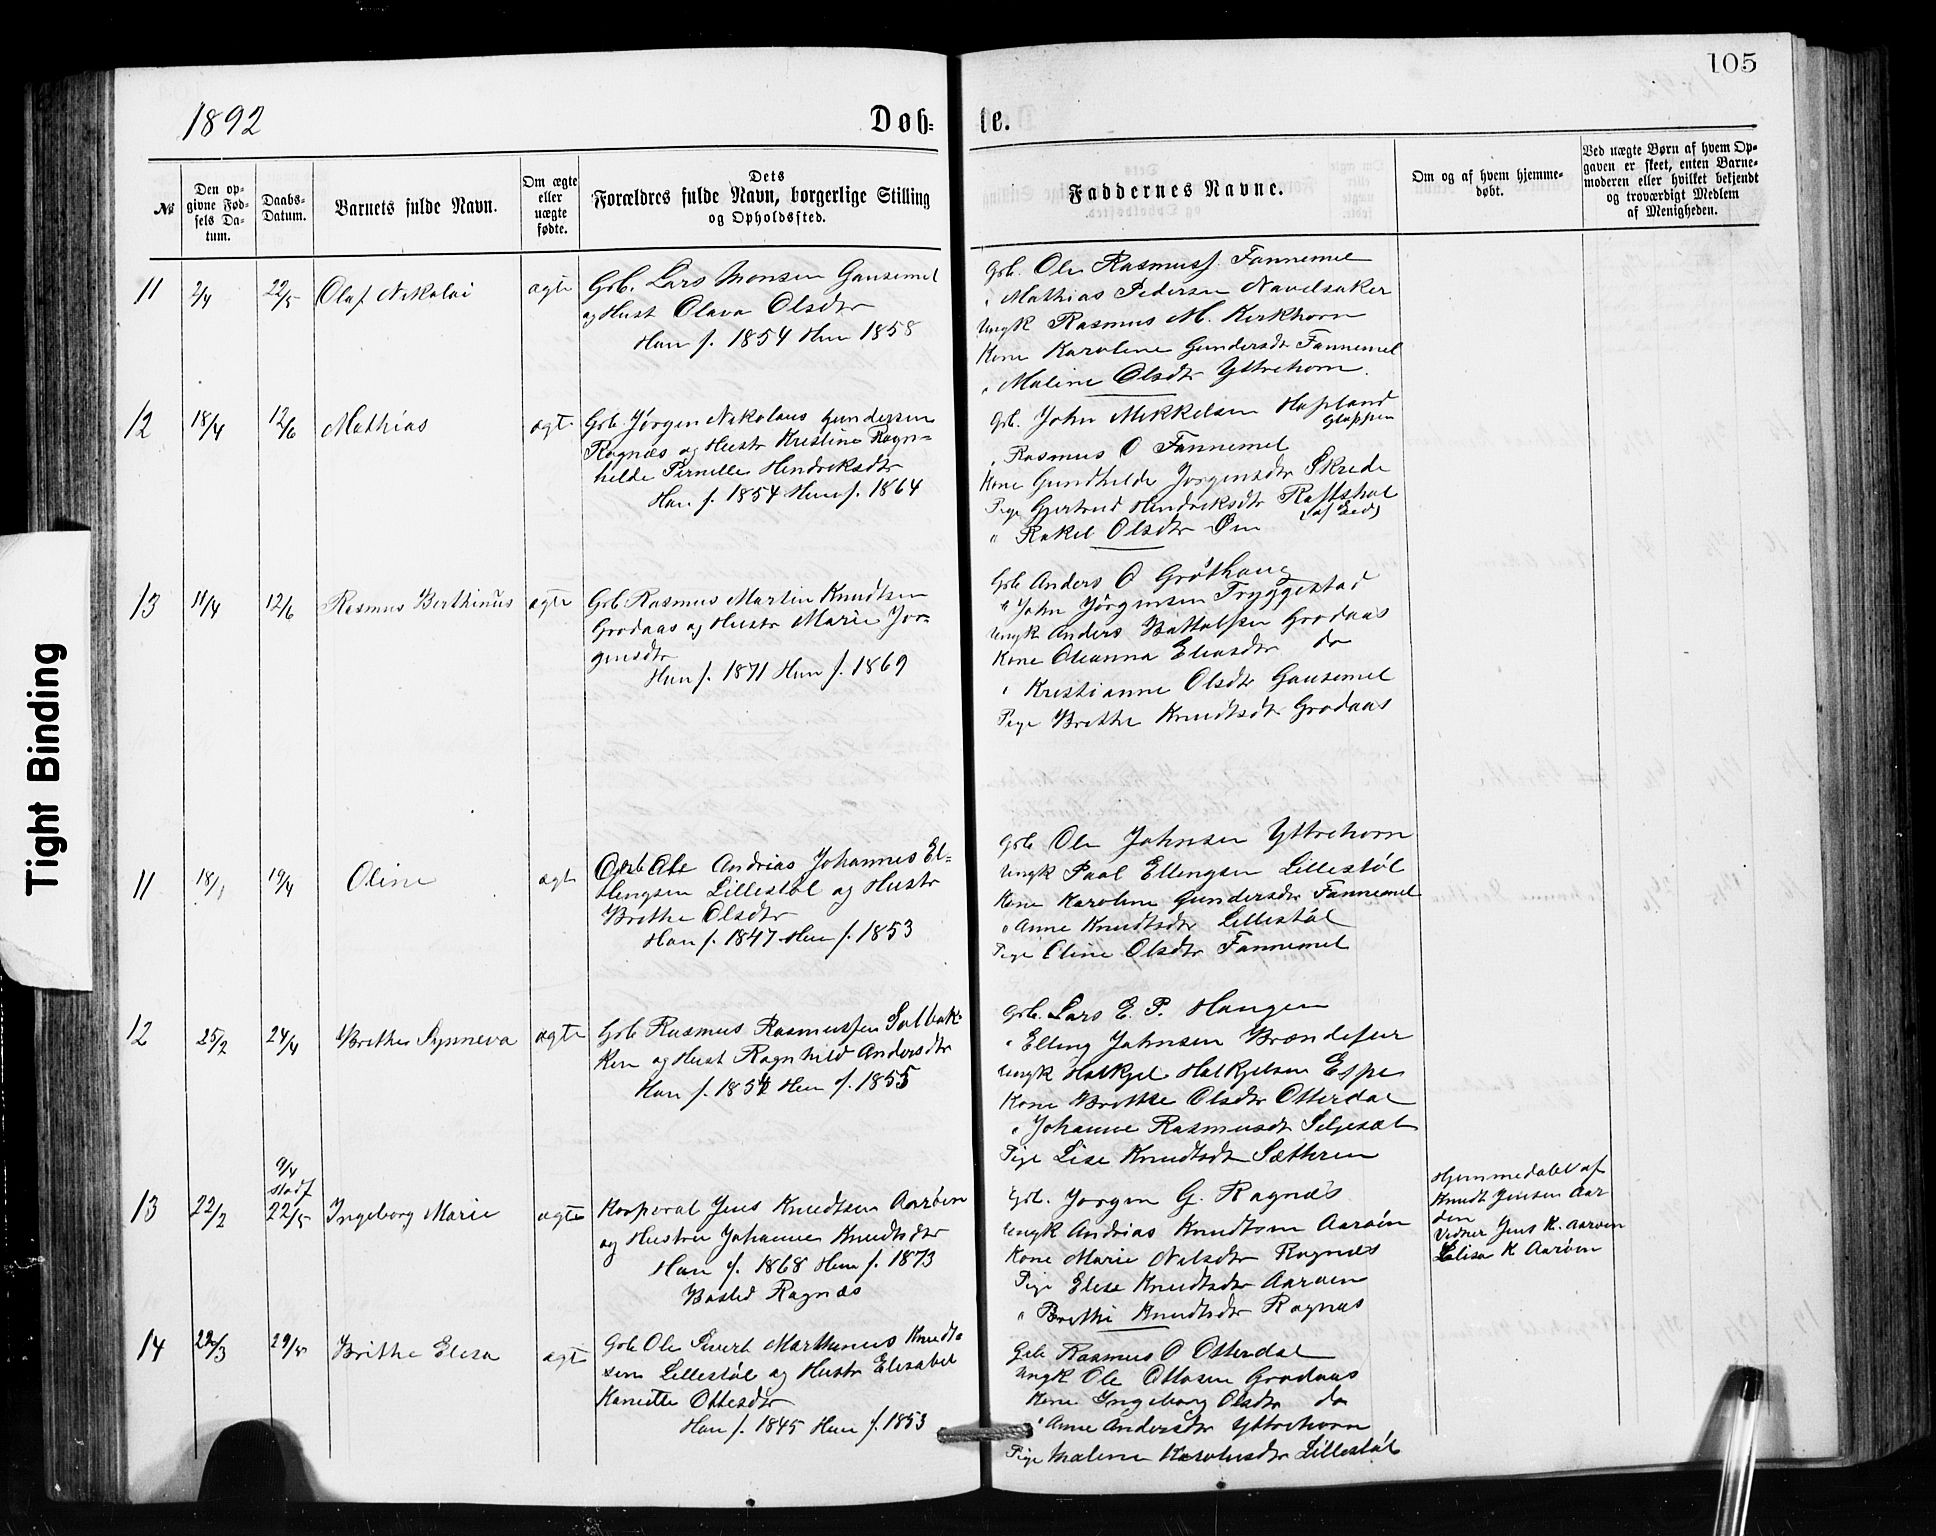 105
1892
Døb- te.
№
Den opgivne Fødsels Datum.
Daabs-Datum.
Barnets fulde Navn.
Om ægte eller uægte fødte.
Dets Forældres fulde Navn, borgerlige Stilling og Opholdssted.
Faddernes Navne.
Om og af hvem hjemmedøbt.
Ved uægte Børn af hvem Opgaven er skeet, enten Barnemoderen eller hvilket bekjendt og troværdigt Medlem af Menigheden.
11 2/4 22/5 Olaf Nikolai ægte
Grb. Lars Monsen Gausemel
og Hust Olava Olsdtr
Han f. 1854 Hun 1858
Grb. Ole Rasmusf. Fannemel
" Mathias Pedersen Navelsaker
Ungk Rasmus M. Kirkhorn
Kone Karoline Gundersdtr Fannemel
" Maline Olsdtr Yttrehorn.
12 18/4 12/6 Mathias ægte
Grb. Jørgen Nikolaus Gundersen
Ragnæs og Hustr Kristine Ragn-
hilde Pernille Hendriksdtr
Han f. 1854 Hun f. 1864
Grb. John Mikkelsen Hopland
Gloppen
" Rasmus O Fannemel
Kone Gundhilde Jørgensdtr Skrede
Pige Gjertrud Hendriksdtr Raftshol
(af Eid)
" Rakel Olsdtr Øen
13 11/4 12/6 Rasmus Berthinus ægte
Grb Rasmus Martin Knudtsen
Grodaas og Hustr Marie Jør-
gensdtr
Han f. 1871 Hun f. 1869
Grb Anders O Grøthaug
" John Jørgensen Tryggestad
Ungk Anders Bottolfsen Grodaas
Kone Oleanna Eliasdtr do
" Kristianne Olsdtr Gausemel
Pige Brithe Knudtsdtr Grodaas
11 18/1 19/4 Oline ægte
Andrias Johannes El-
lingsen Lillestøl og Hustr
Brithe Olsdtr
Han f. 1847 Hun f. 1853
Grb Ole Johnsen Yttrehorn
Ungk Paal Ellingsen Lillestøl
Kone Karoline Gundersdtr Fannemel
" Anne Knudtsdtr Lillestøl
Pige Oline Olsdtr Fannemel
12 25/2 24/4 Brithe Synneva ægte
Grb Rasmus Rasmussen Solbak-
ken og Hust Ragnhild Andersdtr
Han f. 1854 Hun f. 1855
Grb. Lars E. P. Haugen
" Elling Johnsen Brændefur
Ungk Holkjel Holkjelsen Espe
Kone Brithe Olsdtr Otterdal
" Johanne Rasmusdt Seljeset
Pige Lise Knudtsdt Sæthren
13 22/2 9/4 Stadf 22/5 Ingeborg Marie ægte
Korporal Jens Knudtsen Aarøen
og Hustru Johanne Knudtsdtr
Han f. 1868 Hun f. 1873
Bosted Ragnæs
Grb. Jørgen G. Ragnæs
Ungk Andrias Knudtsen Aarøen
Kone Marie Nilsdtr Ragnæs
Pige Elise Knudtsdtr Aarøen
" Brithe Knudtsdtr Ragnæs
Hjemmedøbt af
Knudt Jensen Aar
øen
Vidner Jens K. Aarøen
Elisa K Aarøen
14 22/3 29/5 Brithe Elisa ægte
Grb Ole Sivert Marthinus Knudt-
sen Lillestøl og Hustr Elisabet
Ottesdtr
Han f. 1845 Hun f. 1853
Grb Rasmus O Otterdal
Ungk Ole Ottosen Grodaas
Kone Ingeborg Olsdtr do
" Anne Andersdtr Yttrehorn
Pige Malene Karolusdtr Lillestøl
Tight Binding